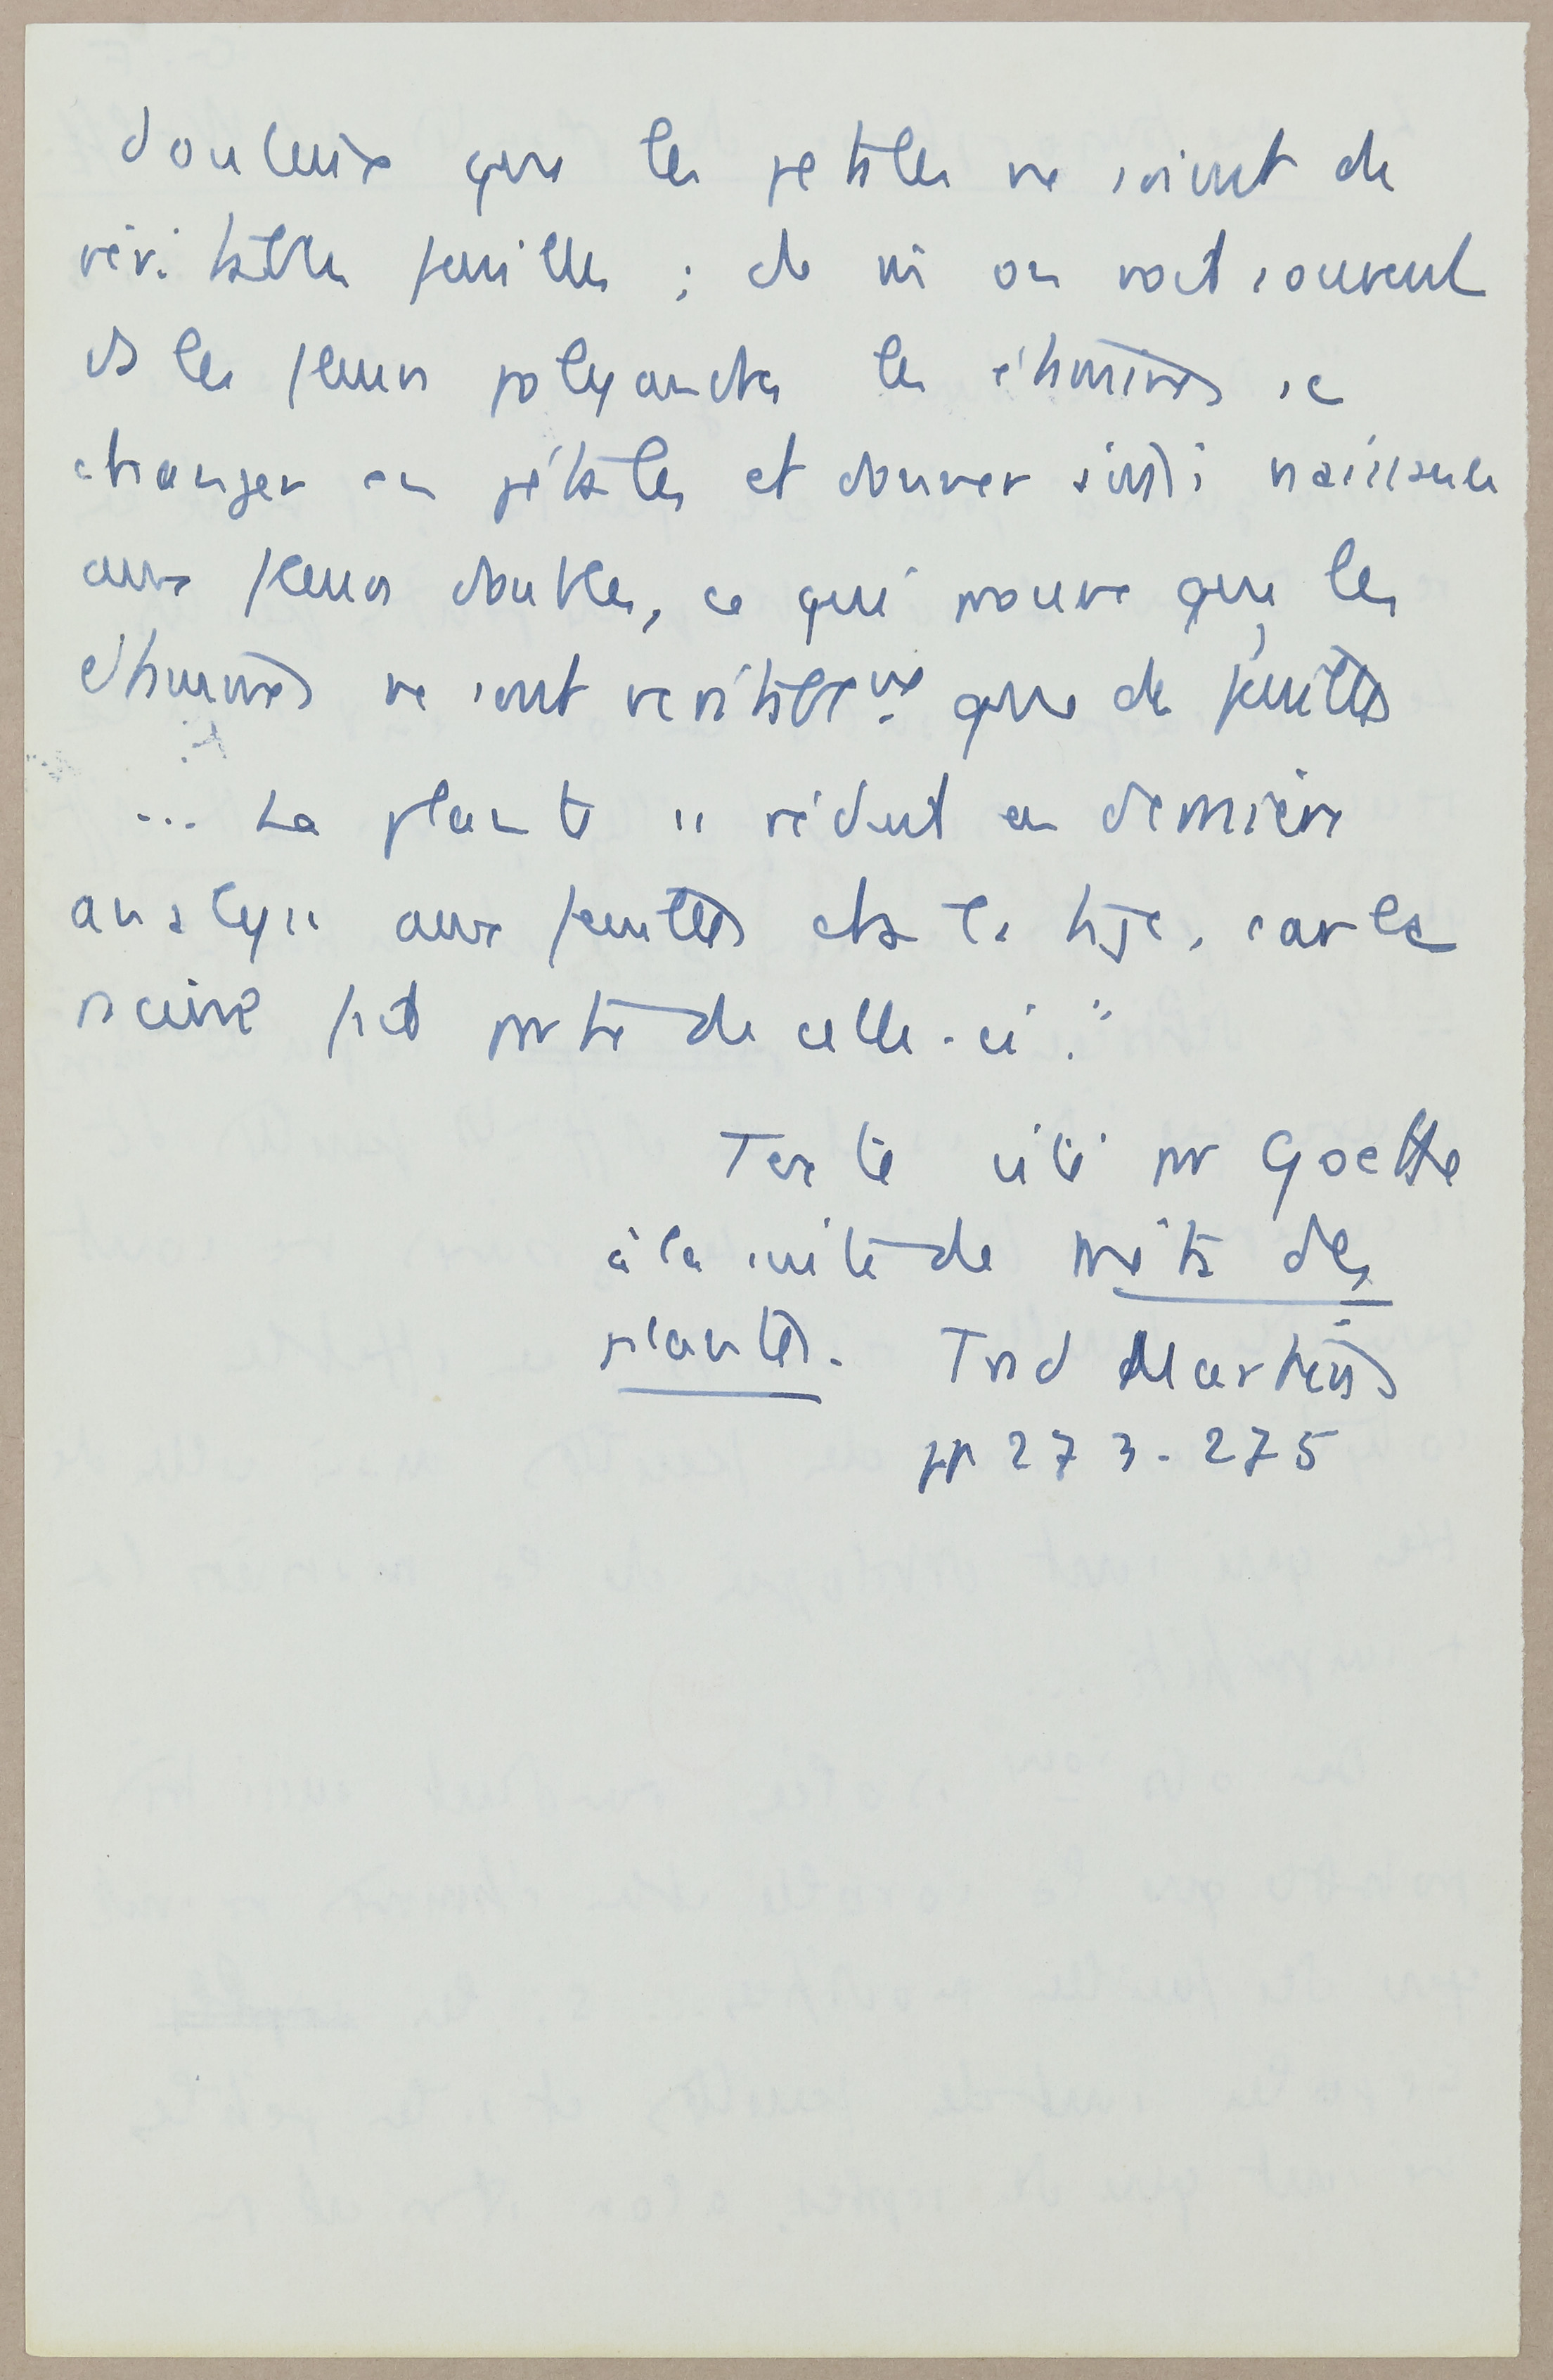 douteux que les petales ne soient de
véritables feuilles ; de mi on voit souvent
ds les fleurs polyandres les étamines se
changer en pétales et donner ainsi naissance
aux fleurs doubles, ce qui prouve que les
étamines ne sont veritablemt que des feuilles
... La plante se réduit en dernière
analyse aux feuilles et à la tige, car la
racine fait partie de celle-ci."
Texte cité par Goethe
à la suite de Méta des
plantes. Trad Martins
pp 273-275